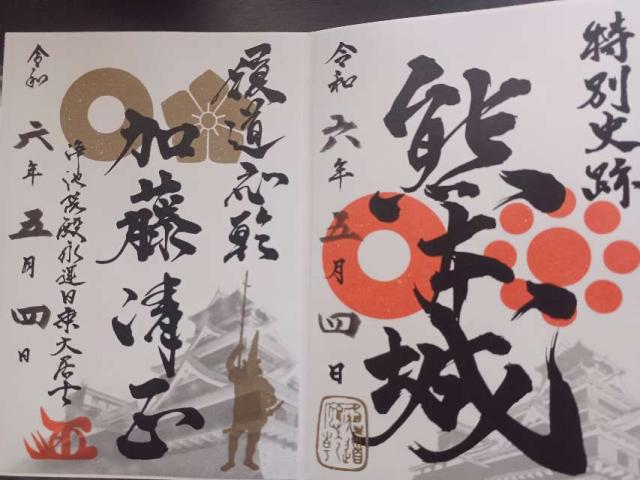 特別史跡
熊本城
令和六年五月四日
履道應乾
加藤清正
浄池院殿永運日乗大居士
令和六年五月四日